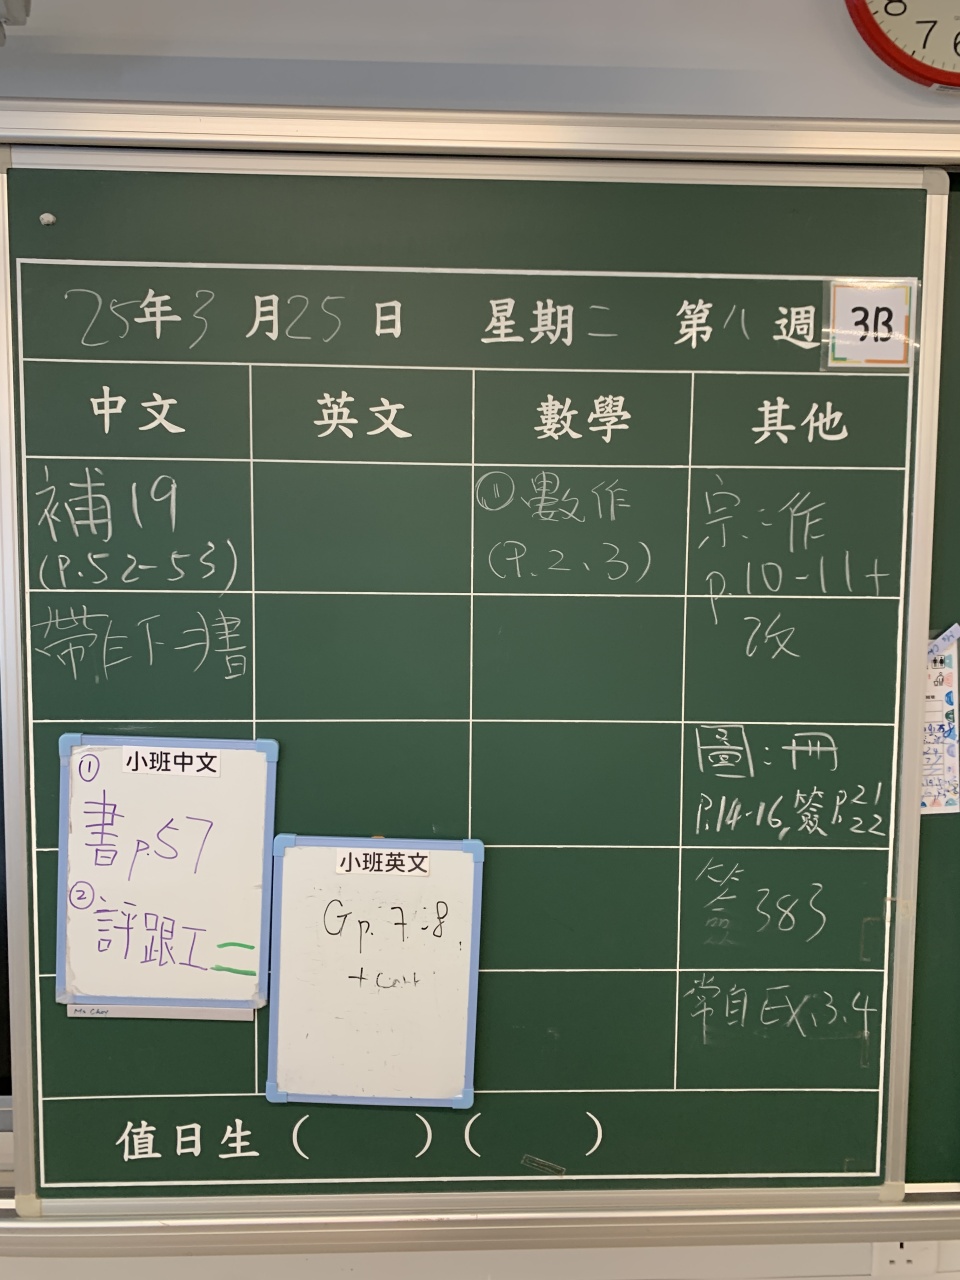 8
7
6
25年3月25日 星期二 第八週 3B
中文 英文 數學 其他
補19
(P.52-53)
帶作下 習書
① 數作
(P.2、3)
宗:作
p.10-11+
改
圖:冊
P.14-16,簽P.21
22
簽383
常自EX.3.4
小班中文
①
書p.57
②
評跟工
Ms Choy
小班英文
G p. 7-8,
+ Corr
值日生 ( ) ( )